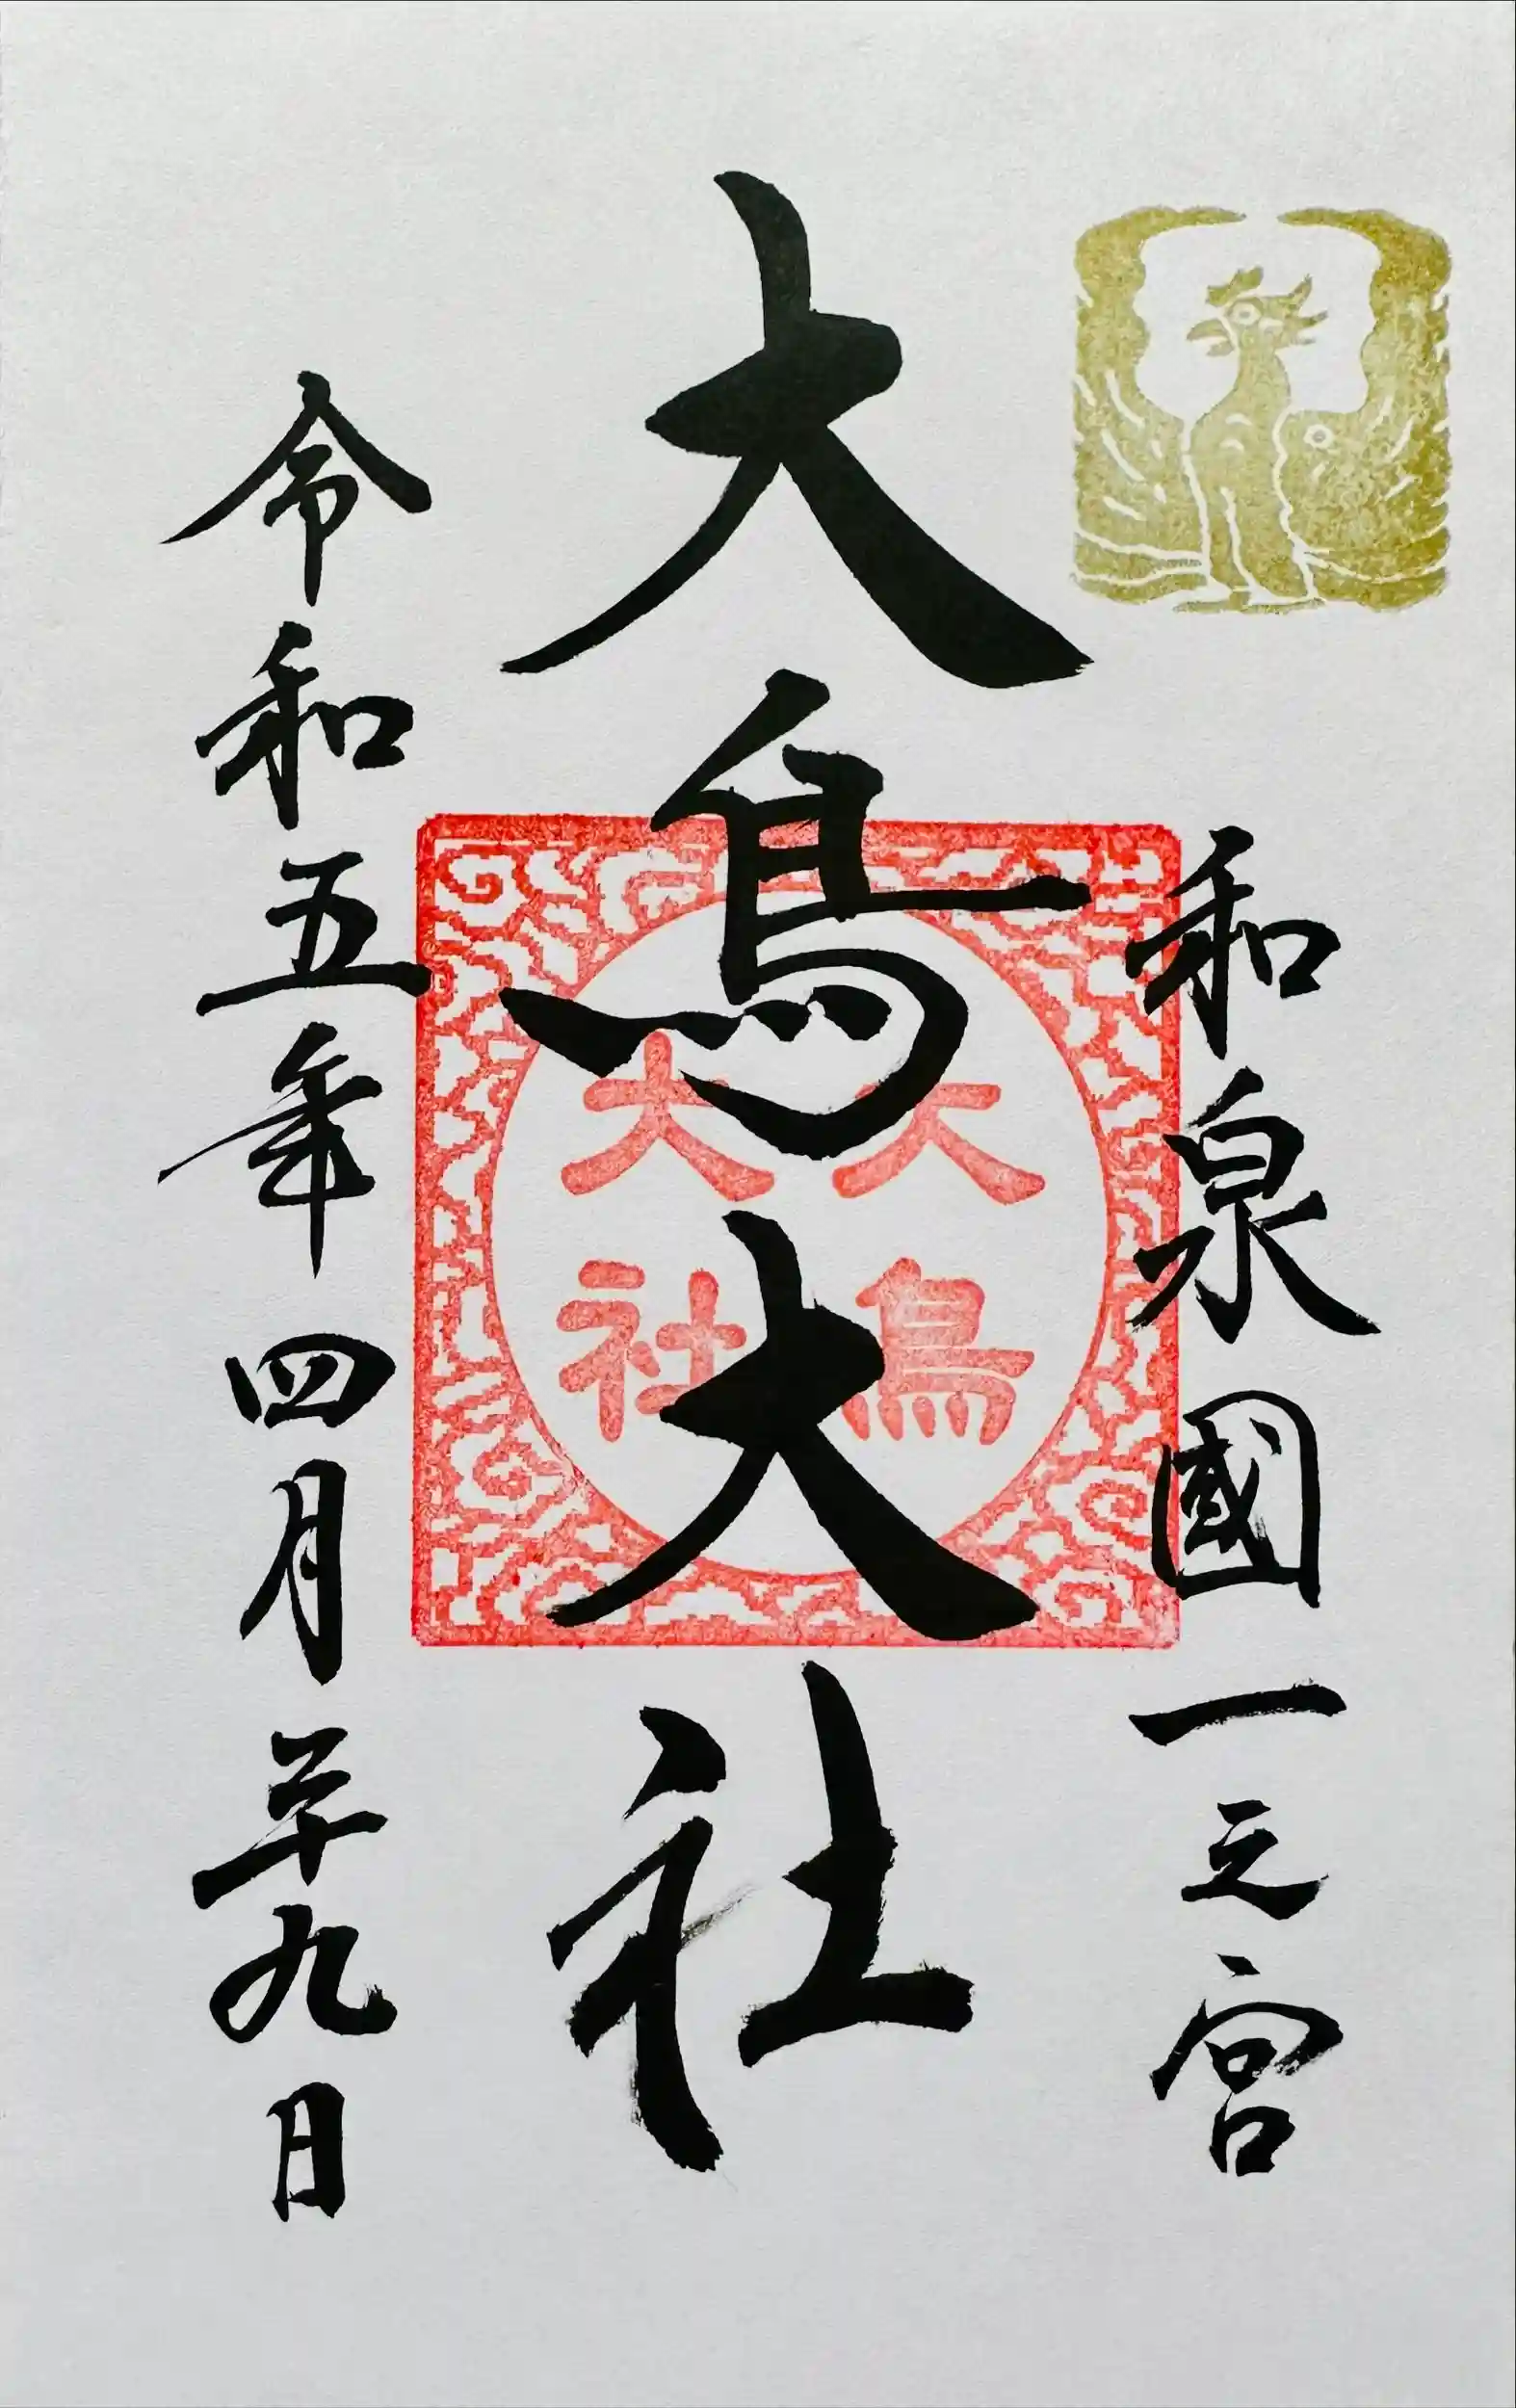 和泉國一之宮
大鳥大社
大鳥
大社
令和五年四月二十九日